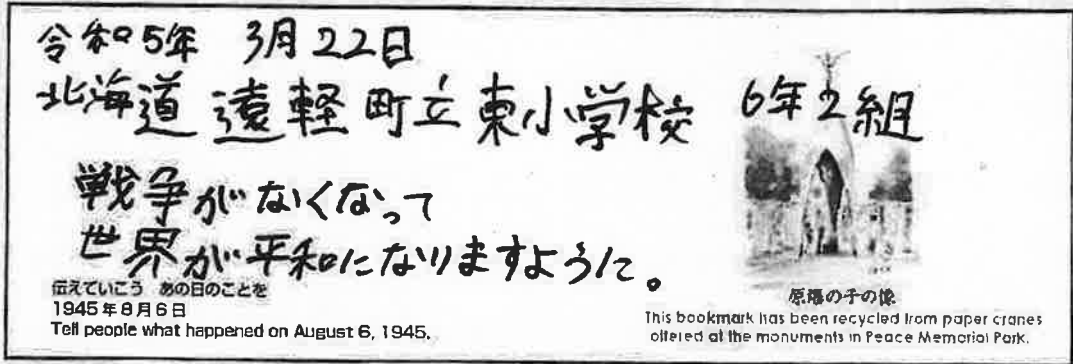 令和5年 3月22日
北海道 遠軽町立東小学校 6年2組
戦争がなくなって
世界が平和になりますように。
伝えていこう あの日のことを
1945年8月6日
Tell people what happened on August 6, 1945.
原爆の子の像
This bookmark has been recycled from paper cranes
offered at the monuments in Peace Memorial Park.